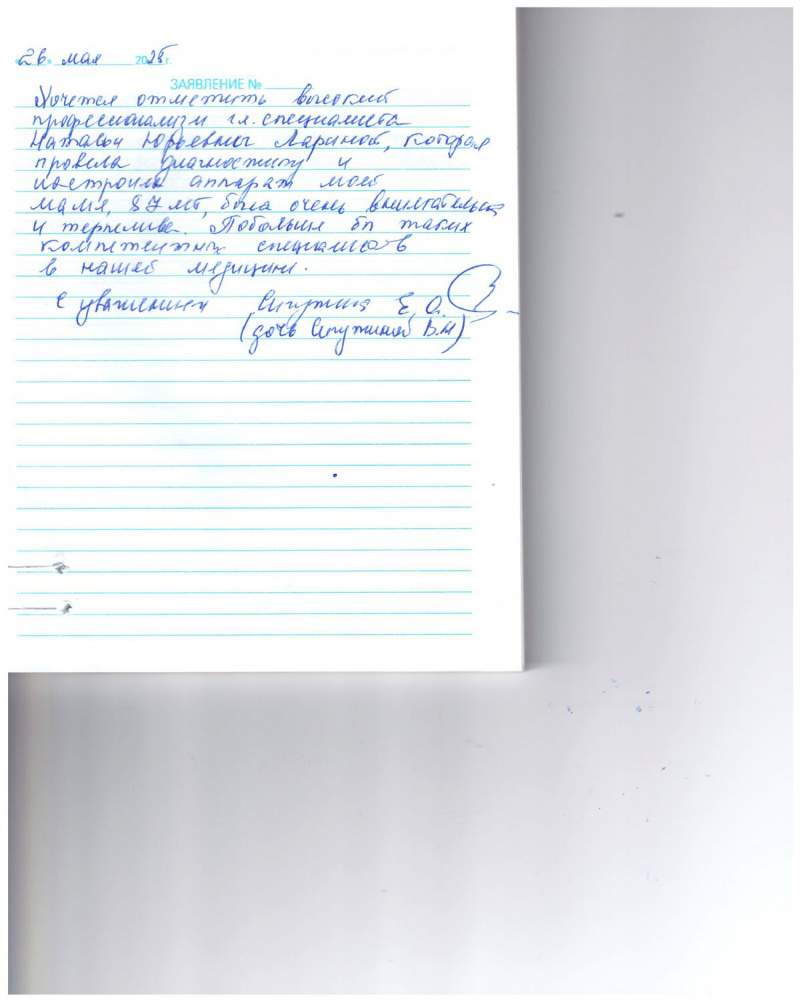 «26» мая 2025 г.
ЗАЯВЛЕНИЕ №
Хочется отметить высокий
профессионализм гл. специалиста
Натальи Юрьевны Лариной, которая
провела диагностику и
настроила аппарат моей
маме, 87 лет, была очень внимательна
и терпелива. Побольше бы таких
компетентных специалистов
в нашей медицине.
С уважением Е. О.
(дочь